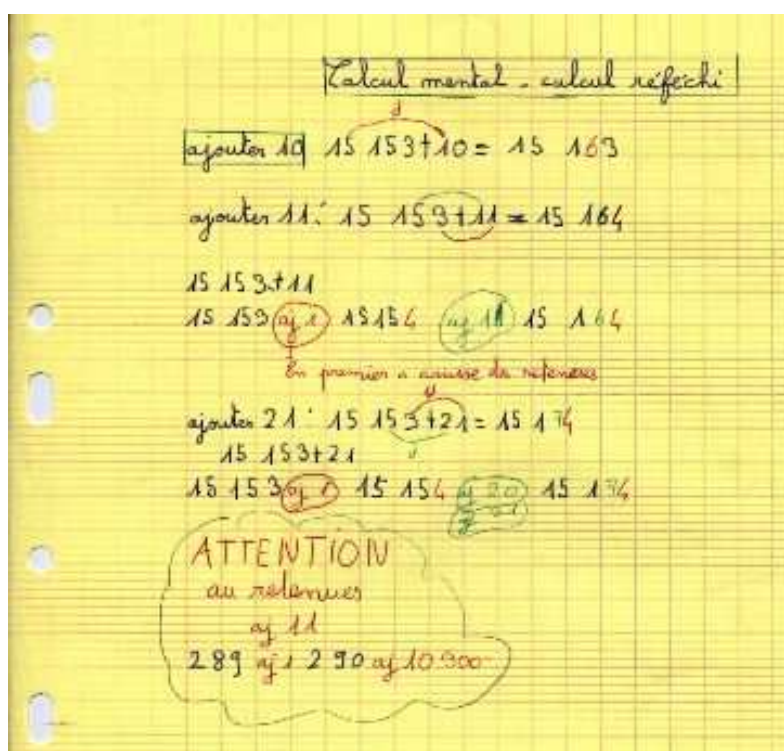 Calcul mental - calcul réfechi
ajouter 10 15 153+10 = 15 163
ajouter 11: 15 153+11 = 15 164
15 153+11
15 153 aj 1 15154 15 164
En premier a causse des retenues
ajouter 21: 15 153+21 = 15 174
15 153+21
15 153 aj 1 15 154 aj 20 15 174
ATTENTION
au retenues
aj 11
289 aj 1 290 aj 10 300